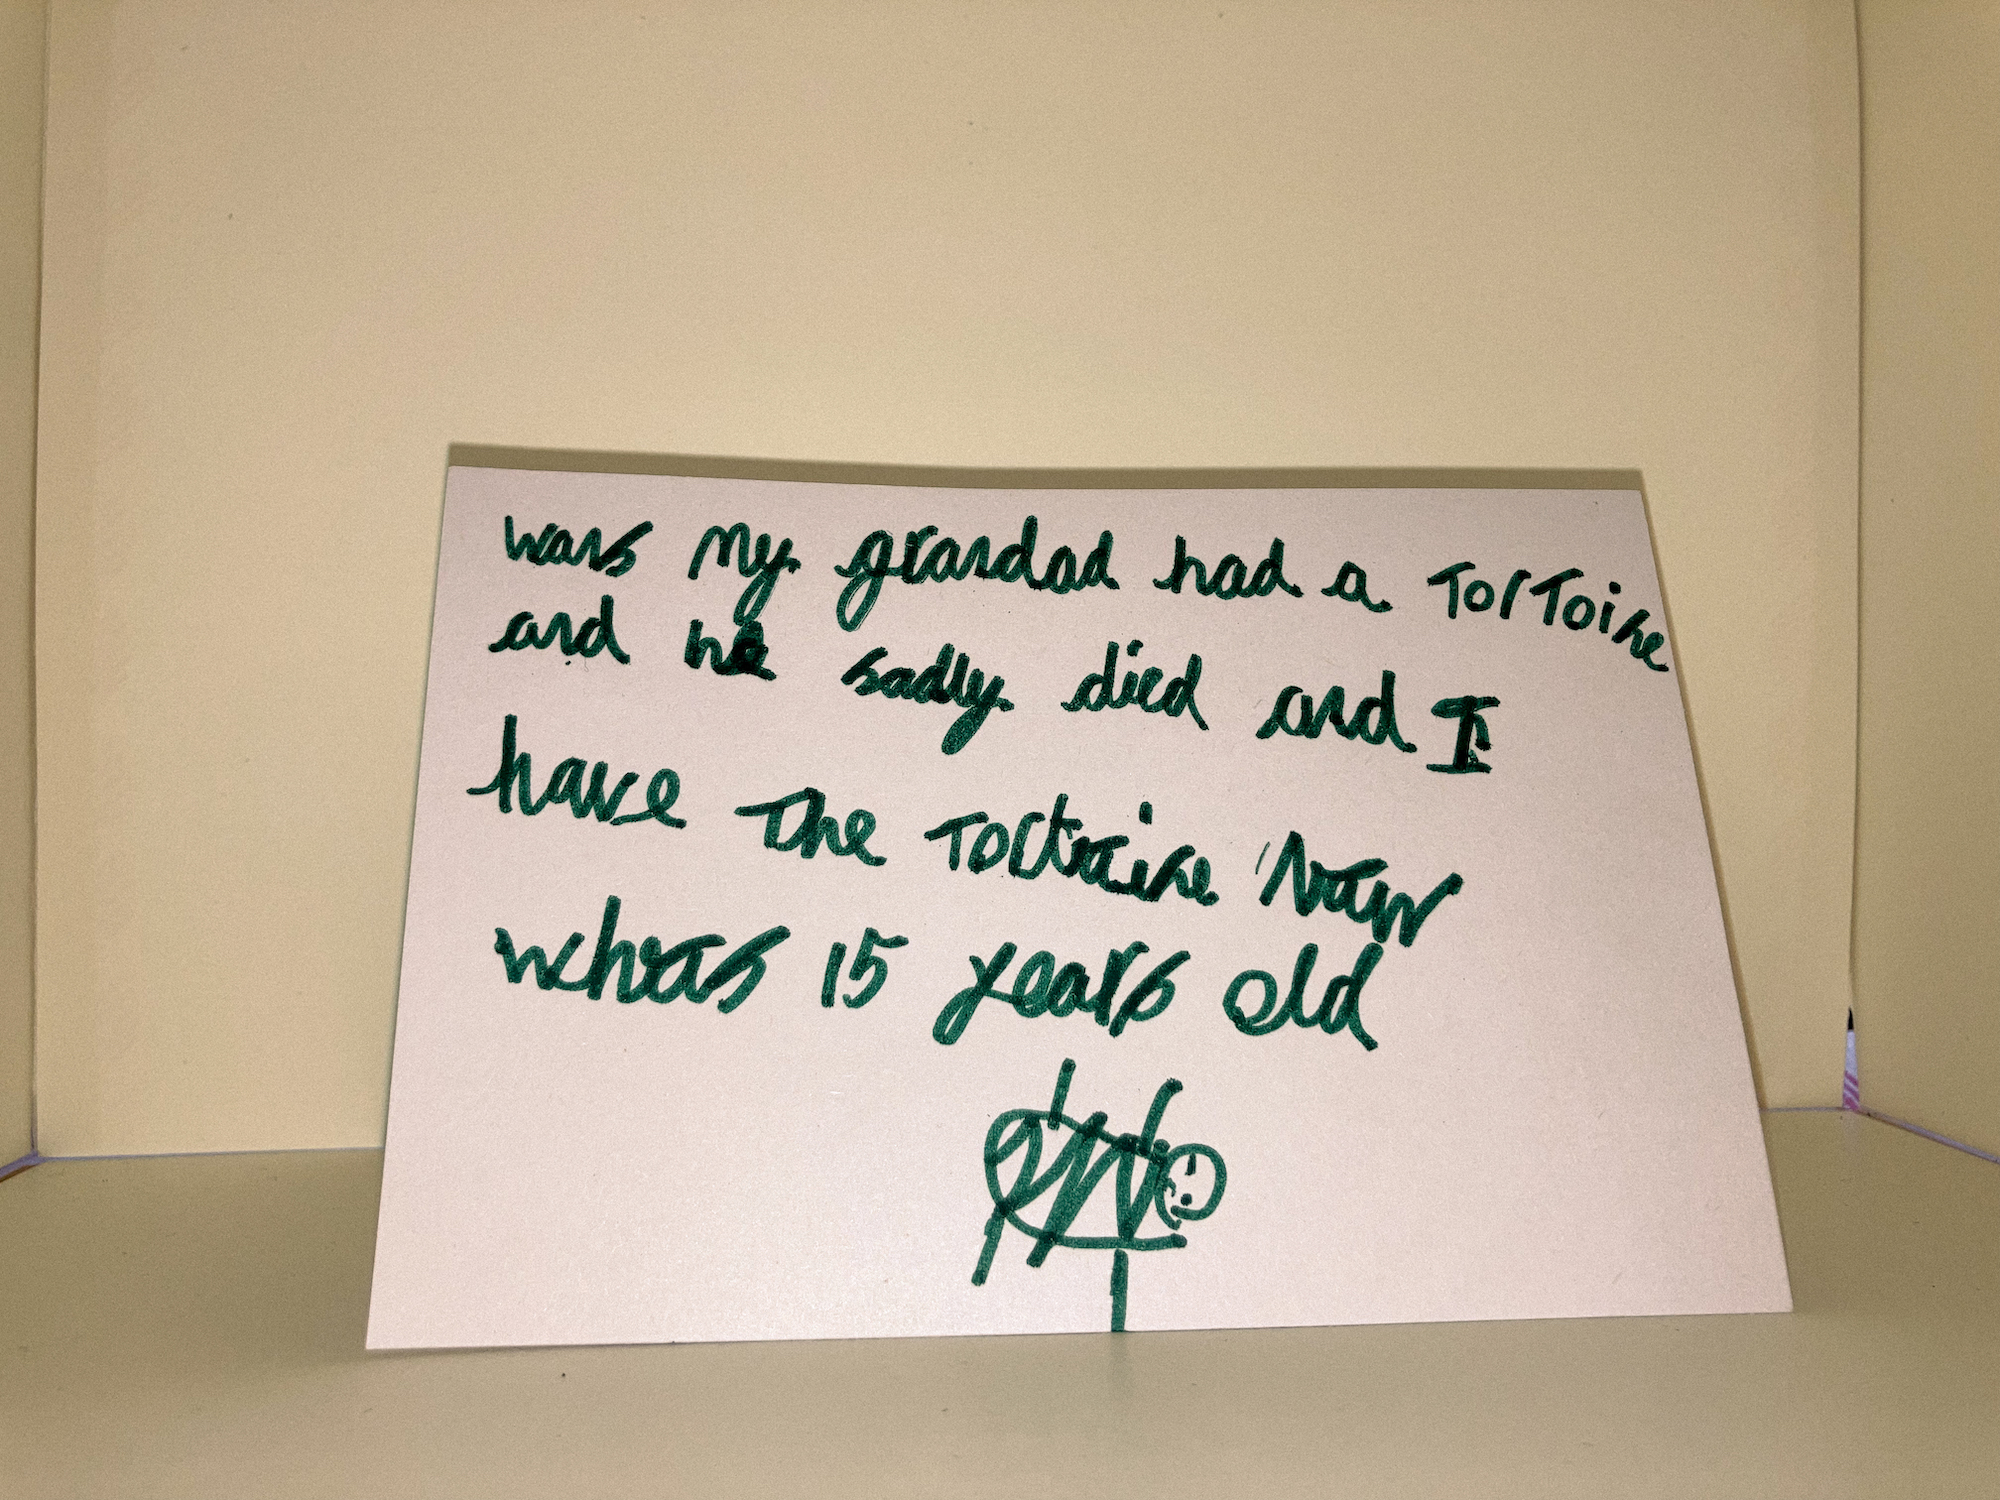 wans my grandad had a Tortoise
and he sadly died and I
have the Tortoise Now
whas 15 years old